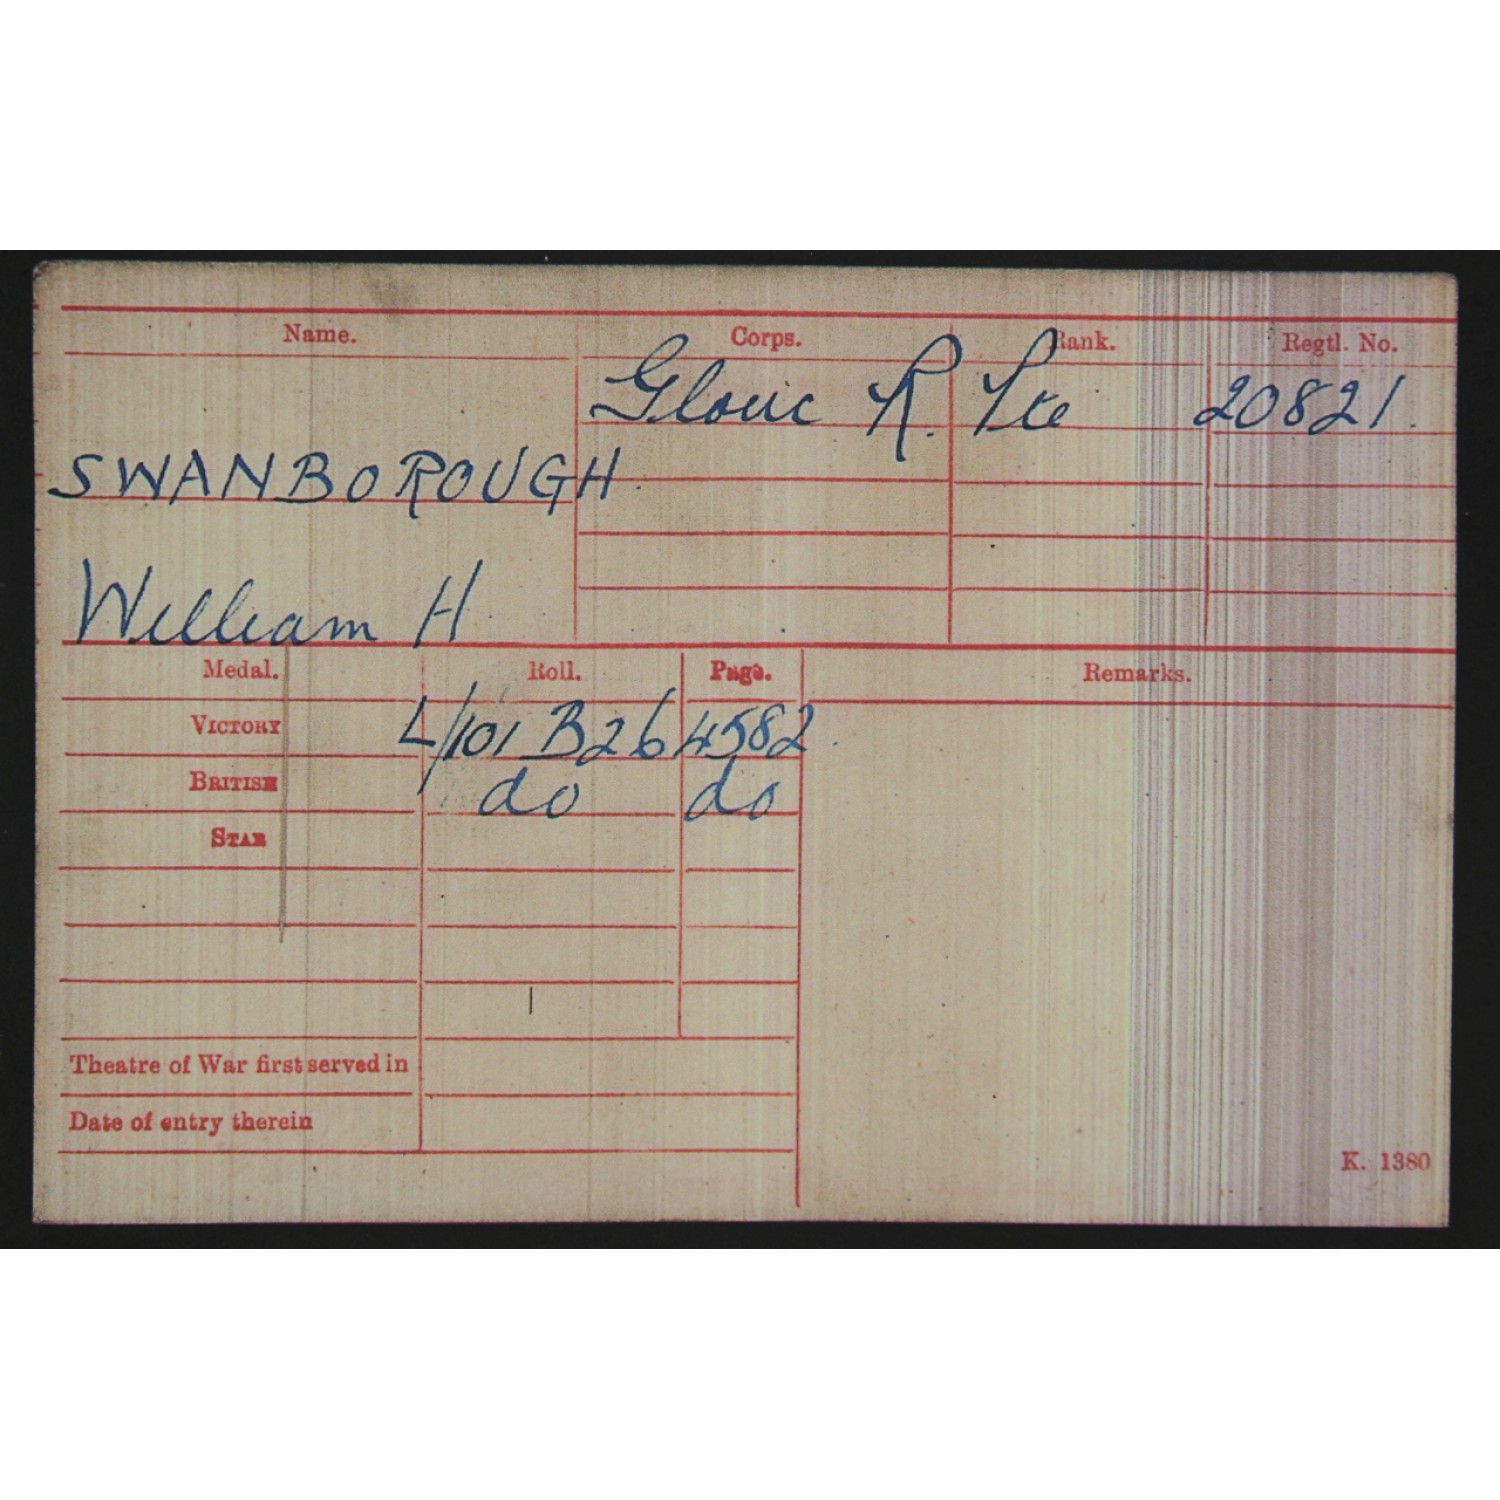 Name. Corps. Rank. Regtl. No.
Glouc R. Pte 20821.
SWANBOROUGH.
William H
Medal. Roll. Page. Remarks.
VICTORY L/101 B26 4582.
BRITISH do do
STAR
Theatre of War first served in
Date of entry therein
K. 1380